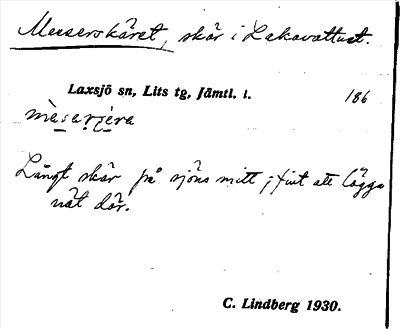 Meeserskäret, skär i Lakavattnet.
Laxsjö sn, Lits tg, Jämtl. l. 186
Långt skär på sjöns mitt; fint att lägga
nät där.
C. Lindberg 1930.